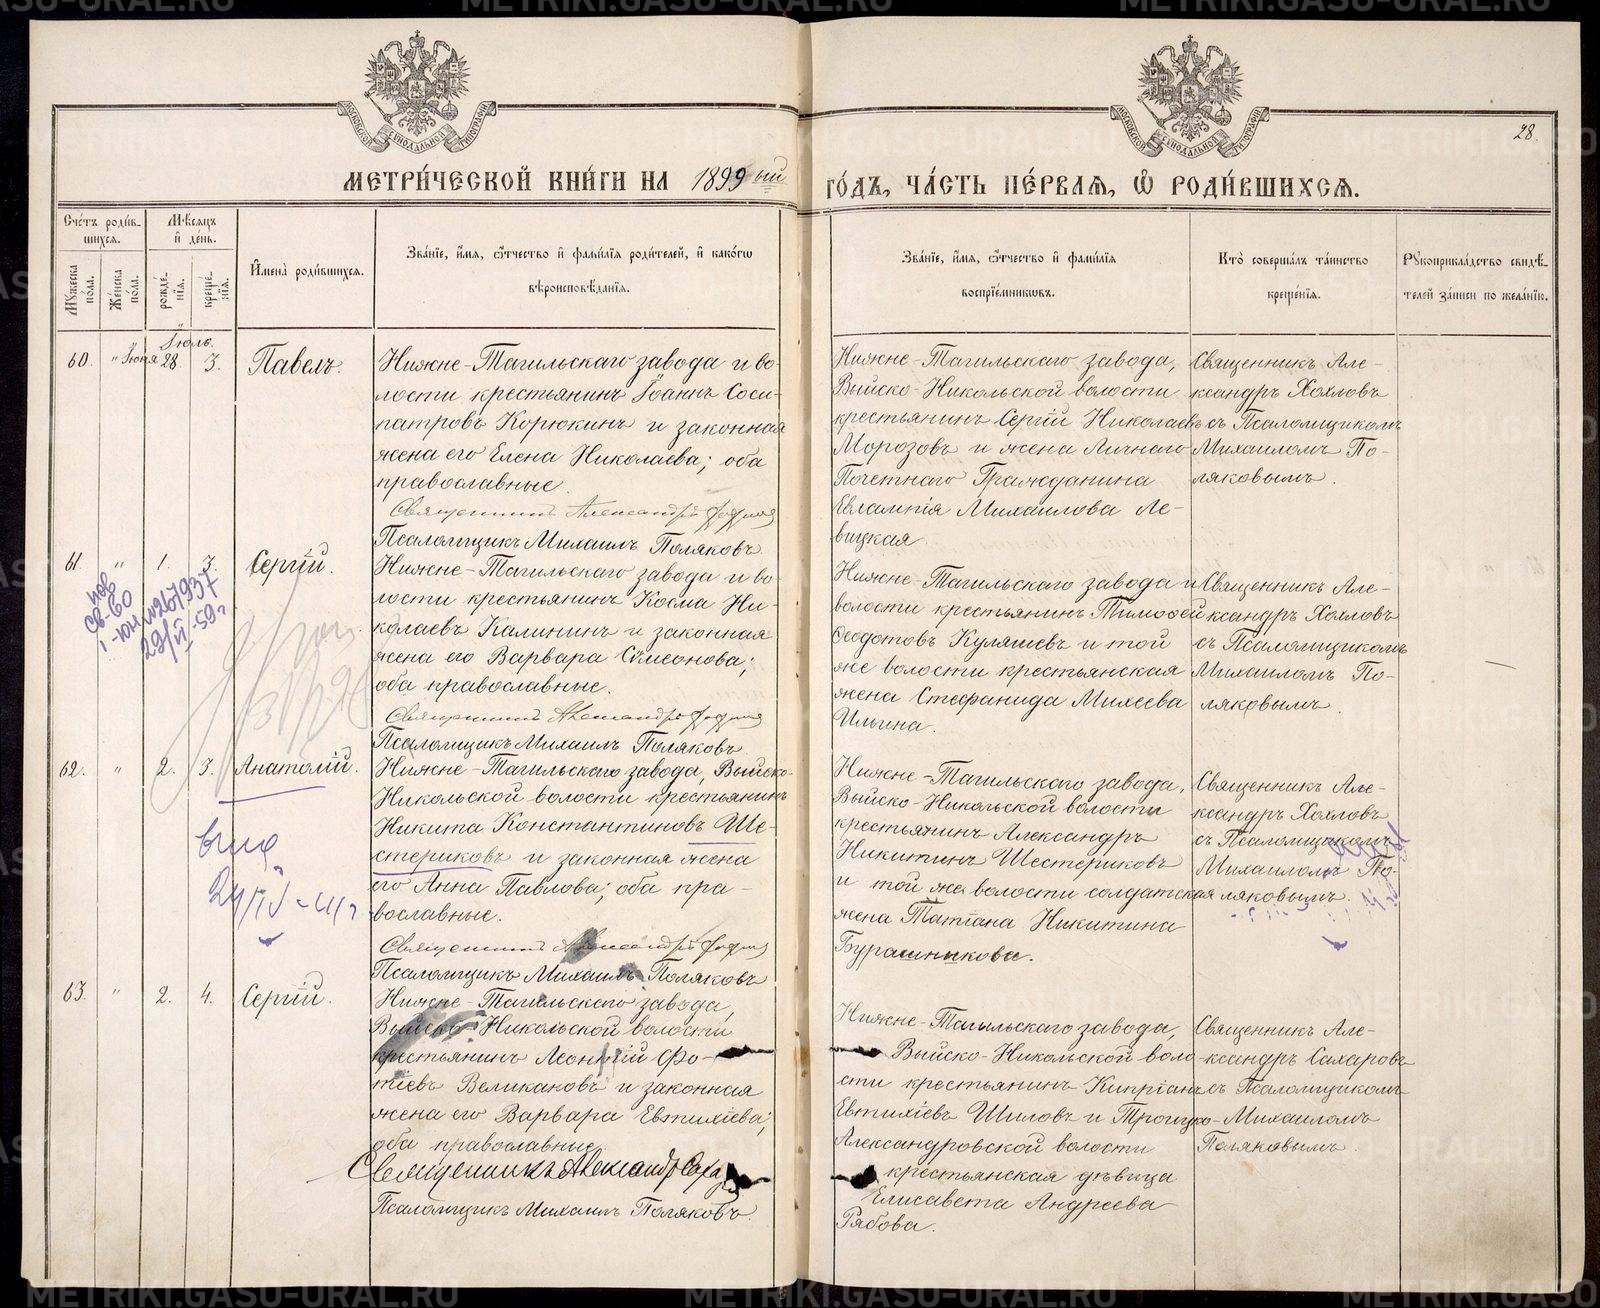 28.
МЕТРИ́ЧЕСКОЙ КНИ́ГИ НА 1899ый ГО́ДЪ, ЧА́СТЬ ПЕ́РВАѦ, Ѡ҆ РОДИ́ВШИХСѦ.
Сче́тъ роди́в-
шихсѧ.
Мѣ́сѧцъ
и҆ де́нь.
Мꙋ́жеска
по́ла.
Же́нска
по́ла.
рожде́-
нїѧ.
креще́-
нїѧ.
И҆мена̀ роди́вшихсѧ.
Зва́нїе, и҆́мѧ, ѻ҆́тчество и҆ фами́лїѧ роди́телей, и҆ како́гѡ
вѣроисповѣ́данїѧ.
Зва́нїе, и҆́мѧ, ѻ҆́тчество и҆ фами́лїѧ
воспрїе́мникѡвъ.
Кто̀ соверша́лъ та́инство
креще́нїѧ.
Рꙋкоприкла́дство свидѣ́-
телей за́писи по жела́нїю.
Іюль.
60 " Іюня 28 3. Павелъ.
Нижне-Тагильскаго завода и во-
лости крестьянинъ Іоаннъ Соси-
патровъ Корюкинъ и законная
жена его Елена Николаева; оба
православные.
Священникъ Александръ Хохловъ
Псаломщикъ Михаилъ Поляковъ
Нижне-Тагильскаго завода,
Выйско-Никольской волости
крестьянинъ Сергій Николаевъ
Морозовъ и жена Личнаго
Почетнаго Гражданина
Евлампія Михаилова Ле-
вицкая.
Священникъ Але-
ксандръ Хохловъ
съ Псаломщикомъ
Михаиломъ По-
ляковымъ.
61. " 1. 3. Сергій.
Нижне-Тагильскаго завода и во-
лости крестьянинъ Косма Ни-
колаевъ Калининъ и законная
жена его Варвара Сѵмеонова;
оба православные.
Священникъ Александръ Хохловъ
Псаломщикъ Михаилъ Поляковъ
Нижне-Тагильскаго завода и
волости крестьянинъ Тимофей
Ѳеодотовъ Куляшевъ и той
же волости крестьянская
жена Стефанида Михеева
Ильина.
Священникъ Але-
ксандръ Хохловъ
съ Псаломщикомъ
Михаиломъ По-
ляковымъ
пов
св-во
1-ЮН №267937
29/VI-59г
62. " 2. 3. Анатолій.
Нижне-Тагильскаго завода, Выйско-
Никольской волости крестьянинъ
Никита Константиновъ Ше-
стериковъ и законная жена
его Анна Павлова; оба пра-
вославные.
Священникъ Александръ Хохловъ
Псаломщикъ Михаилъ Поляковъ
Нижне-Тагильскаго завода,
Выйско-Никольской волости
крестьянинъ Александръ
Никитинъ Шестериковъ
и той же волости солдатская
жена Татіана Никитина
Бурашникова.
Священникъ Але-
ксандръ Хохловъ
съ Псаломщикомъ
Михаиломъ По-
ляковымъ.
63. " 2. 4. Сергій.
Нижне-Тагильскаго завода,
Выйско-Никольской волости
крестьянинъ Леонтій Фо-
тіевъ Великановъ и законная
жена его Варвара Евтихіева;
оба православные
Священникъ Александръ Саха
Псаломщикъ Михаилъ Поляковъ.
Нижне-Тагильскаго завода,
Выйско-Никольской воло-
сти крестьянинъ Кипріанъ
Евтихіевъ Шиловъ и Троицко-
Александровской волости
крестьянская дѣвица
Елисавета Андреева
Рябова.
Священникъ Але-
ксандръ Сахаровъ
съ Псаломщикомъ
Михаиломъ
Поляковымъ.
METRIKI.GASU-URAL.RU